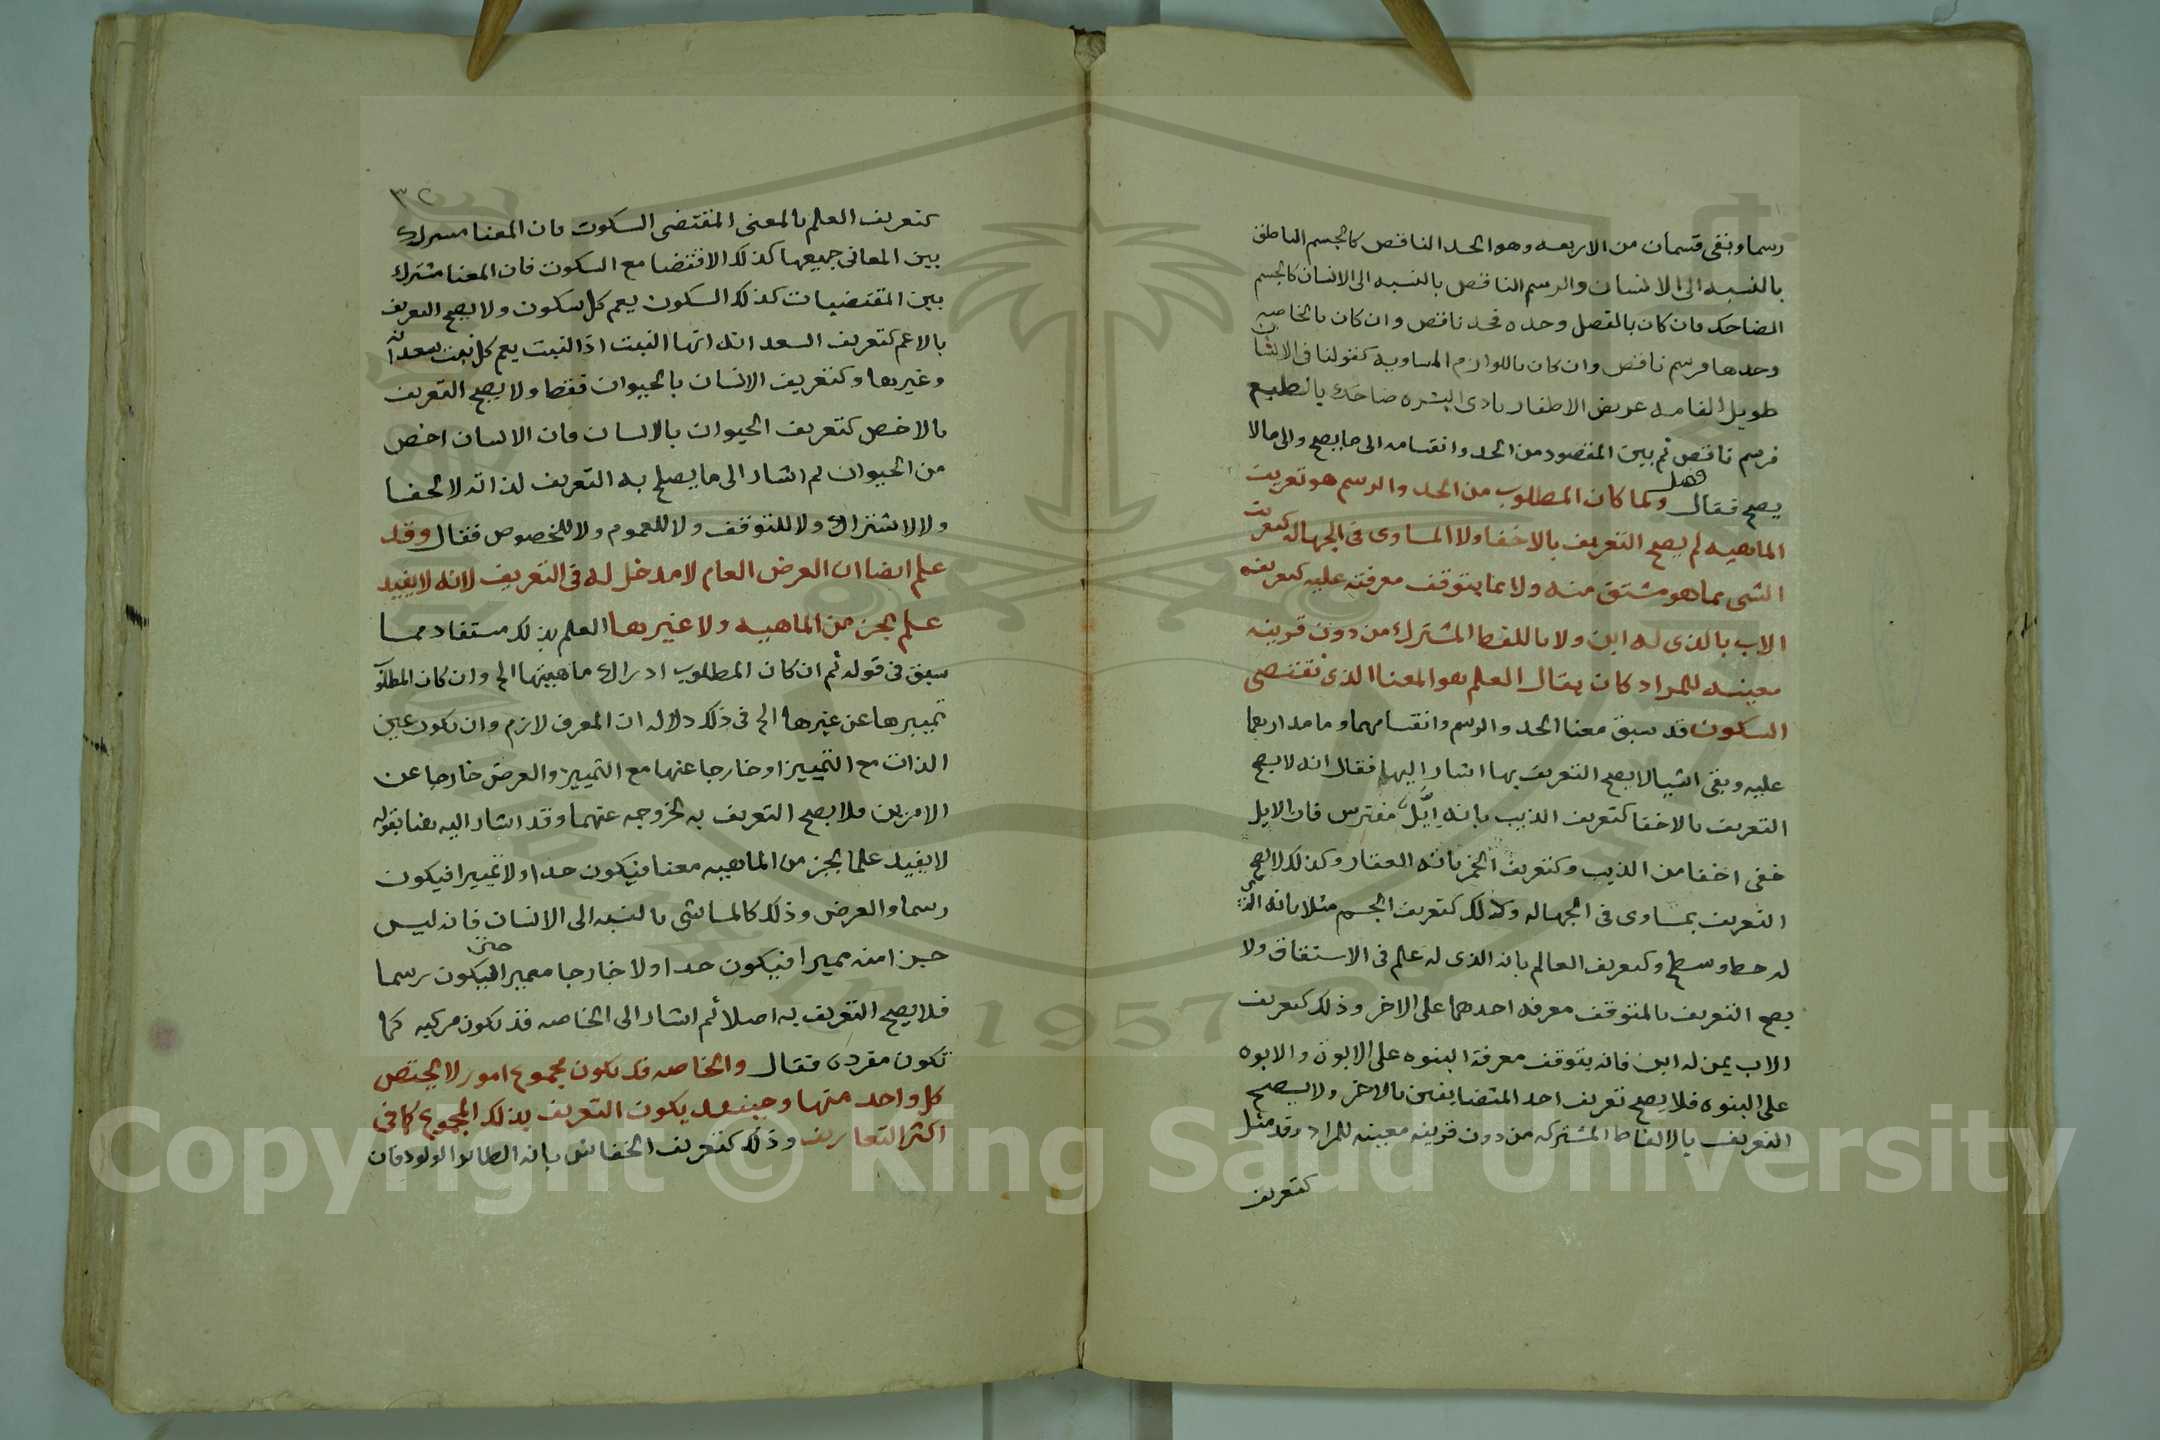 رسما وبقى قسمان من الاربعه وهو الحد الناقص كالجسم الناطق
بالنسبه الى الانسان والرسم الناقص بالنسبه الى الانسان كالجسم
الضاحك فان كان بالفصل وحده فحد ناقص وان كان بالخاصه
وحدها فرسم ناقص وان كان باللوازم المساويه كقولنا فى الانسان
طويل القامه عريض الاظفار بادى البشره ضاحك بالطبع
فرسم ناقص ثم بين المقصود من الحد وانقسامه الى ما يصح والى ما لا
يصح فقال فصل ولما كان المطلوب من الحد والرسم هو تعريف
الماهيه لم يصح التعريف بالاخفا ولا المساوى فى الجهاله كتعريف
الشى بما هو مشتق منه ولا بما يتوقف معرفته عليه كتعريف
الاب بالذى له ابن ولا باللفظ المشترك من دون قرينه
معينه للمراد كان يقال العلم هو المعنا الذى تقتضى
السكون قد سبق معنا الحد والرسم وانقسامهما وما مدارهما
عليه وبقى اشيا لا يصح التعريف بها اشار اليها فقال انه لا يصح
التعريف بالاخفا كتعريف الذيب بانه ايل مفترس فان الايل
خفى اخفا من الذيب وكتعريف الخمر بانه العقار وكذلك لا يصح
التعريف بمساوى فى الجهاله وكذلك كتعريف الجسم مثلا بانه الذى
له خط وسطح وكتعريف العالم بانه الذى له علم فى الاشتقاق ولا
يصح التعريف بالمتوقف معرفه احدهما على الاخر وذلك كتعريف
الاب بمن له ابن فانه يتوقف معرفة البنوه على الابون والابوه
على البنوه فلا يصح تعريف احد المتضايفين بالاخر ولا يصح
التعريف بالالفاظ المشتركه من دون قرينه معينه للمراد وقد مثل
كتعريف
٣٥
كتعريف العلم بالمعنى المقتضى السكون فان المعنا مشترك
بين المعانى جميعها كذلك الاقتضا مع السكون فان المعنا مشترك
بين المقتضيات كذلك السكون يعم كل سكون ولا يصح التعريف
بالاعم كتعريف السعدانه انها النبت اذ النبت يعم كل نبت سعدانه
وغيرها وكتعريف الانسان بالحيوان فقط ولا يصح التعريف
بالاخص كتعريف الحيوان بالانسان فان الانسان اخص
من الحيوان ثم اشار الى ما يصلح به التعريف لذاته لا لخفا
ولا لاشتراك ولا للتوقف ولا للعموم ولا للخصوص فقال وقد
علم ايضا ان العرض العام لا مدخل له فى التعريف لانه لا يفيد
علم الجز من الماهيه ولا غيرها العلم بذلك مستفاد مما
سبق فى قوله ثم ان كان المطلوب ادراك ماهيتها الخ وان كان المطلوب
تمييزها عن غيرها الخ فى ذلك دلاله ان المعرف لازم وان يكون عين
الذات مع التمييز او خارجا عنها مع التمييز والعرض خارجا عن
الامرين فلا يصح التعريف به لخروجه عنهما وقد اشار اليه هنا بقوله
لا يفيد علما بجز من الماهيه معنا فيكون حدا ولا تمييزا فيكون
رسما والعرض وذلك كالماشى بالنسبه الى الانسان فانه ليس
جزا منه مميزا فيكون حدا ولا خارجا مميزا حتى يكون رسما
فلا يصح التعريف به اصلا ثم اشار الى الخاصه قد تكون مركبه كما
تكون مفرده فقال والخاصه قد تكون مجموع امور لا يختص
كل واحد منها وحينئذ يكون التعريف بذلك المجموع كما فى
اكثر التعاريف وذلك كتعريف الخفاش بانه الطائر الولود فان